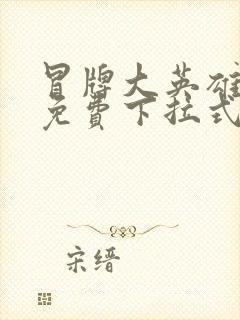 冒牌大英雄
免費下拉式
宋缙